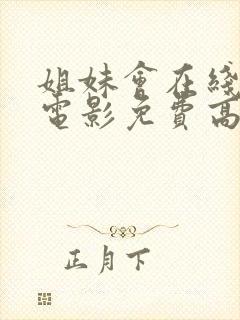 姐妹會在綫
電影免費高
正月下